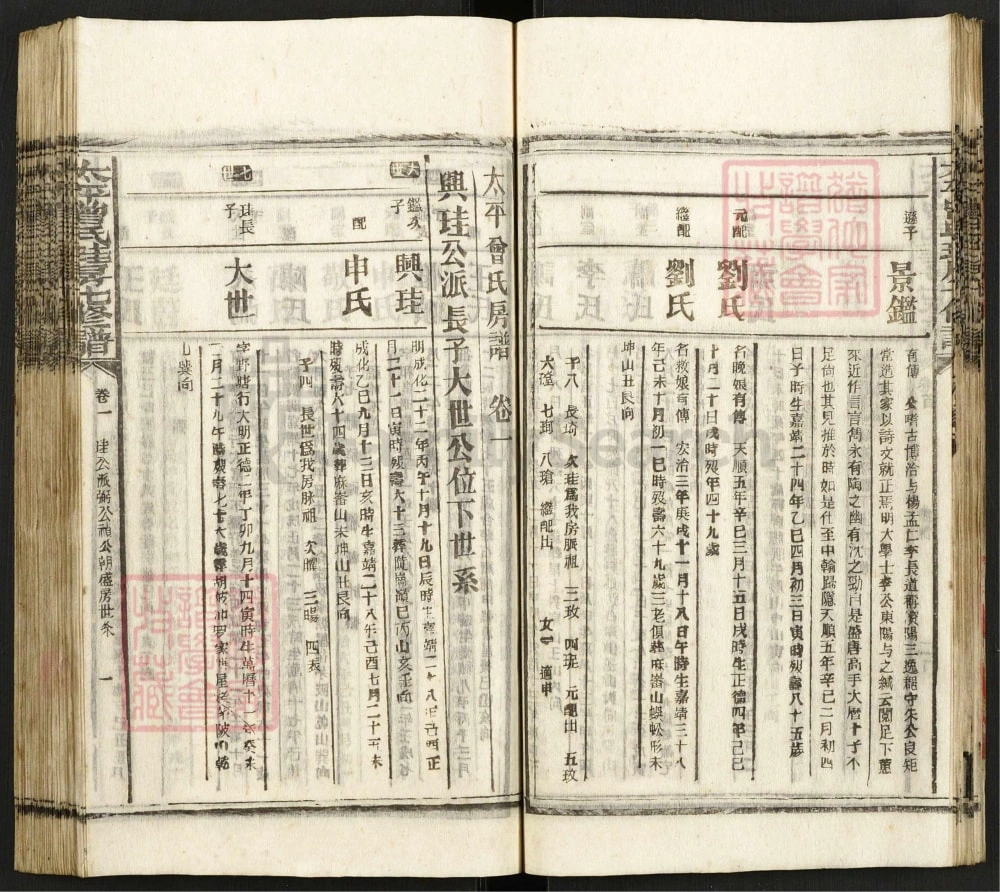 遜子
景鑑
有傳 公嗜古博洽與楊孟仁李長道稱資陽三逸郡守朱公良矩
常造其家以詩文就正焉明大學士李公東陽與之緘云閱足下蕙
來近作言言雋永有陶之幽有沈之勁自是盛唐高手大曆十子不
足尚也其見推於時如是仕至中翰歸隱天順五年辛巳二月初四
日子時生嘉靖二十四年乙巳四月初三日寅時歿壽八十五歲
元配
劉氏
名晚娘有傳 天順五年辛巳三月十五日戌時生正德四年己巳
十月二十日戌時歿年四十九歲
繼配
劉氏
名救娘有傳 宏治三年庚戌十一月十八日午時生嘉靖三十八
年己未十月初一巳時歿壽六十九歲三老俱葬麻峇山蜈蚣形未
坤山丑艮向
子八 長琦 次珪爲我房脈祖 三玫 四珽 元配出 五玟
六瑝 七珣 八瑲 繼配出 女一 適申
太平曾氏房譜 卷一
興珪公派長子大世公位下世系
六世
鑑次子
興珪
明成化二十二年丙午十月十九日辰時生嘉靖二十八年己酉正
月二十一日寅時歿壽六十三葬陡嶺巳丙山亥壬向
配
申氏
成化乙巳九月十三日亥時生嘉靖二十八年己酉七月二十二未
時歿壽六十四歲葬麻峇山未坤山丑艮向
子四 長世爲我房脈祖 次曜 三暘 四表
七世
珪長子
大世
字野塘行大明正德二年丁卯九月十四寅時生萬曆十一年癸未
二月二十九午時歿壽七十六歲葬
山巽向
太平曾氏珪房七修譜
卷一
珪公派弼公祖公朝盛房世系
一